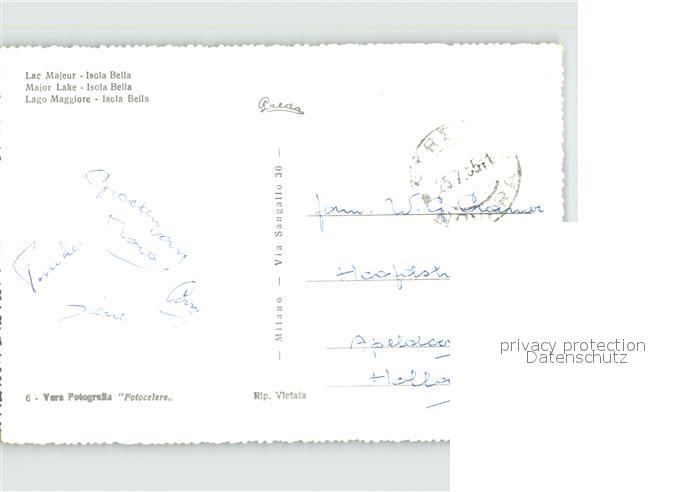 Lac Majeur - Isola Bella
Major Lake - Isola Bella
Lago Maggiore - Isola Bella
Preda
— Milano — Via Sangallo 30 —
25.7.55
Groeten van
Tineke
fam. W. G. Cramer
Hoofdst
Apeldoo
Hollo
privacy protection
Datenschutz
6 - Vera Fotografia "Fotocelere„
Rip. Vietata